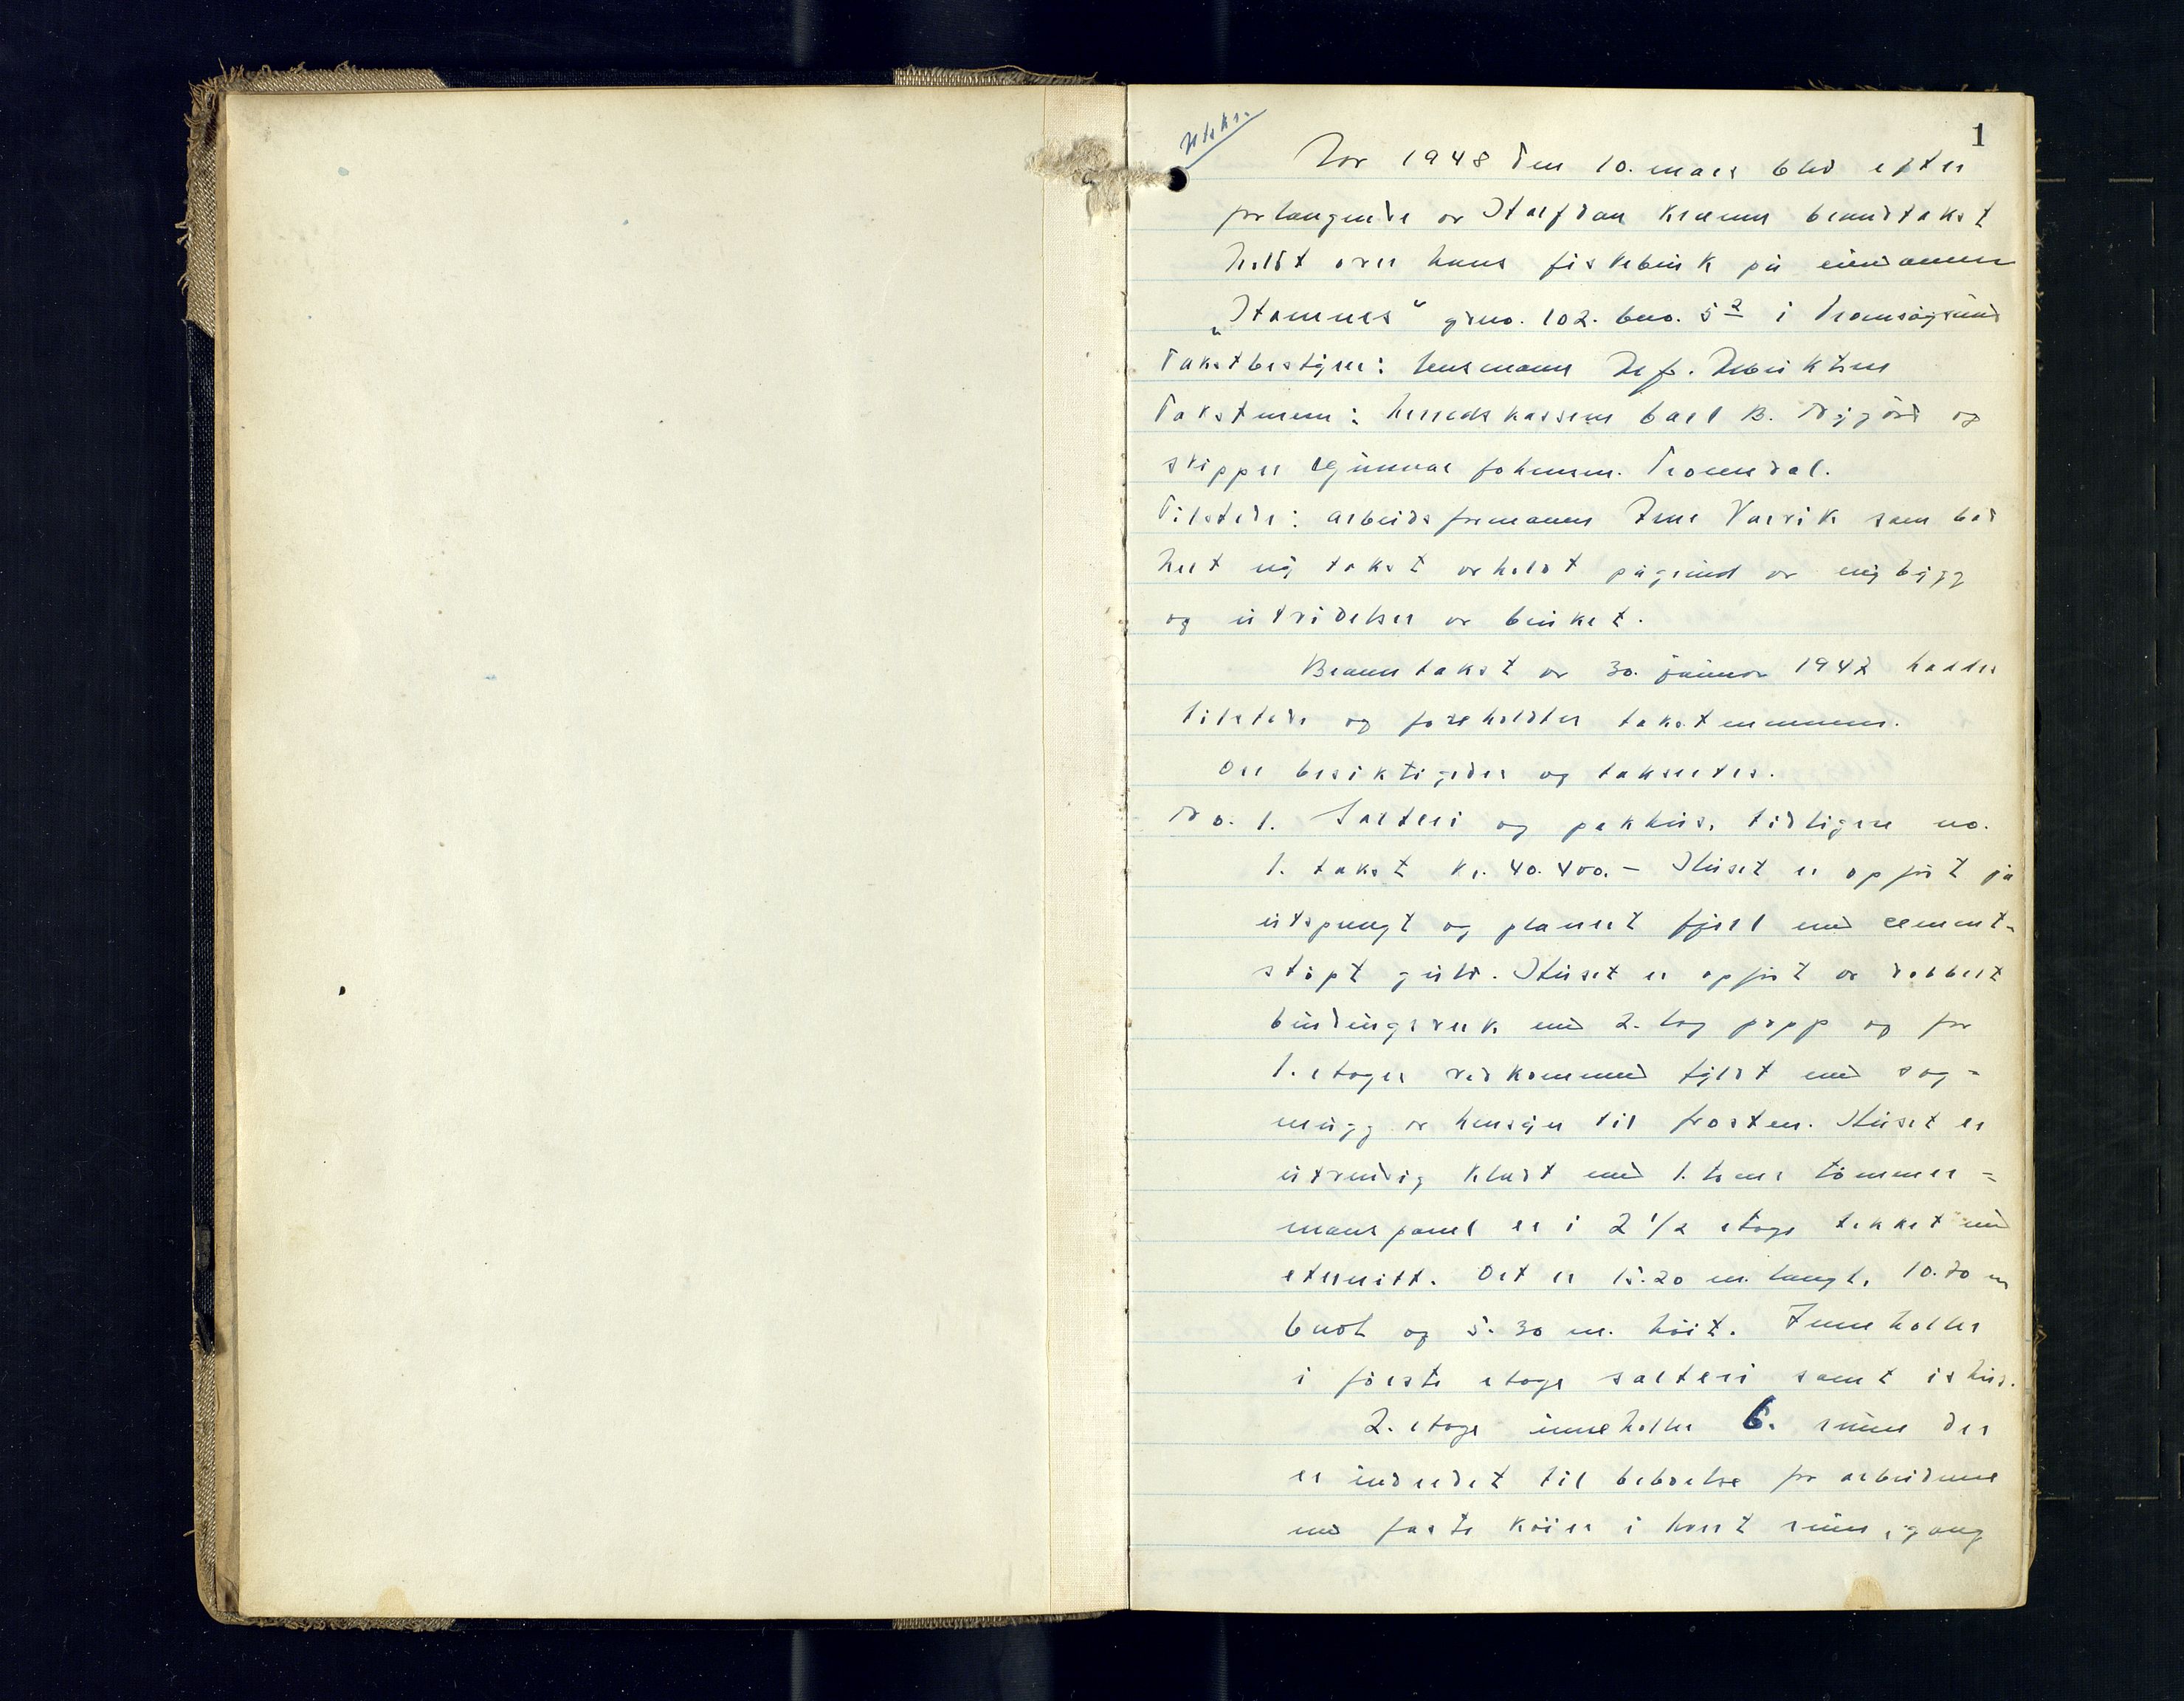 1
Utskr.
År 1948 den 10. mars blev efter
forlangende av Halfdan Kræmer brandtakst
holdt over hans fiskebruk på eiendommen
„Stamnes“ grno. 102. bno. 5² i Tromsøysund
Takstbestyrer: lensmann
Takstmenn: herredskasserer Carl B. Nygård og
skipper Gunnar Johansen. Tromsdal.
Tilstede: arbeidsformann Jens Valvik som bad
her ny takst avholdt pågrund av nybygg
og utvidelser av bruket.
Branntakst av 30. januar 1942 haddes
tilstede og foreholdtes takstmennene.
Det besiktigedes og takseertes.
No. 1. Salteri og pakkhus, tidligere no.
1. takst kr. 40.400.- Huset er opført på
utspængt og planert fjell med cement-
støpt gulv. Huset er opført av dobbelt
bindingsverk med 2. lag papp og for
1. etages vedkommend fyldt med sag-
mugg av hensyn til frosten. Huset er
utvendig kledt med 1. toms tømmer=
manspanel er i 2 1/2 etage tekket med
eternitt. Det er 15.20 m. langt, 10.70 m
bredt og 5.30 m. høit. Inneholder
i første etage salteri samt ishus.
2. etage inneholder 6. rum der
er indredet til beboelse for arbeiderne
med faste køier i hvert rum, gang